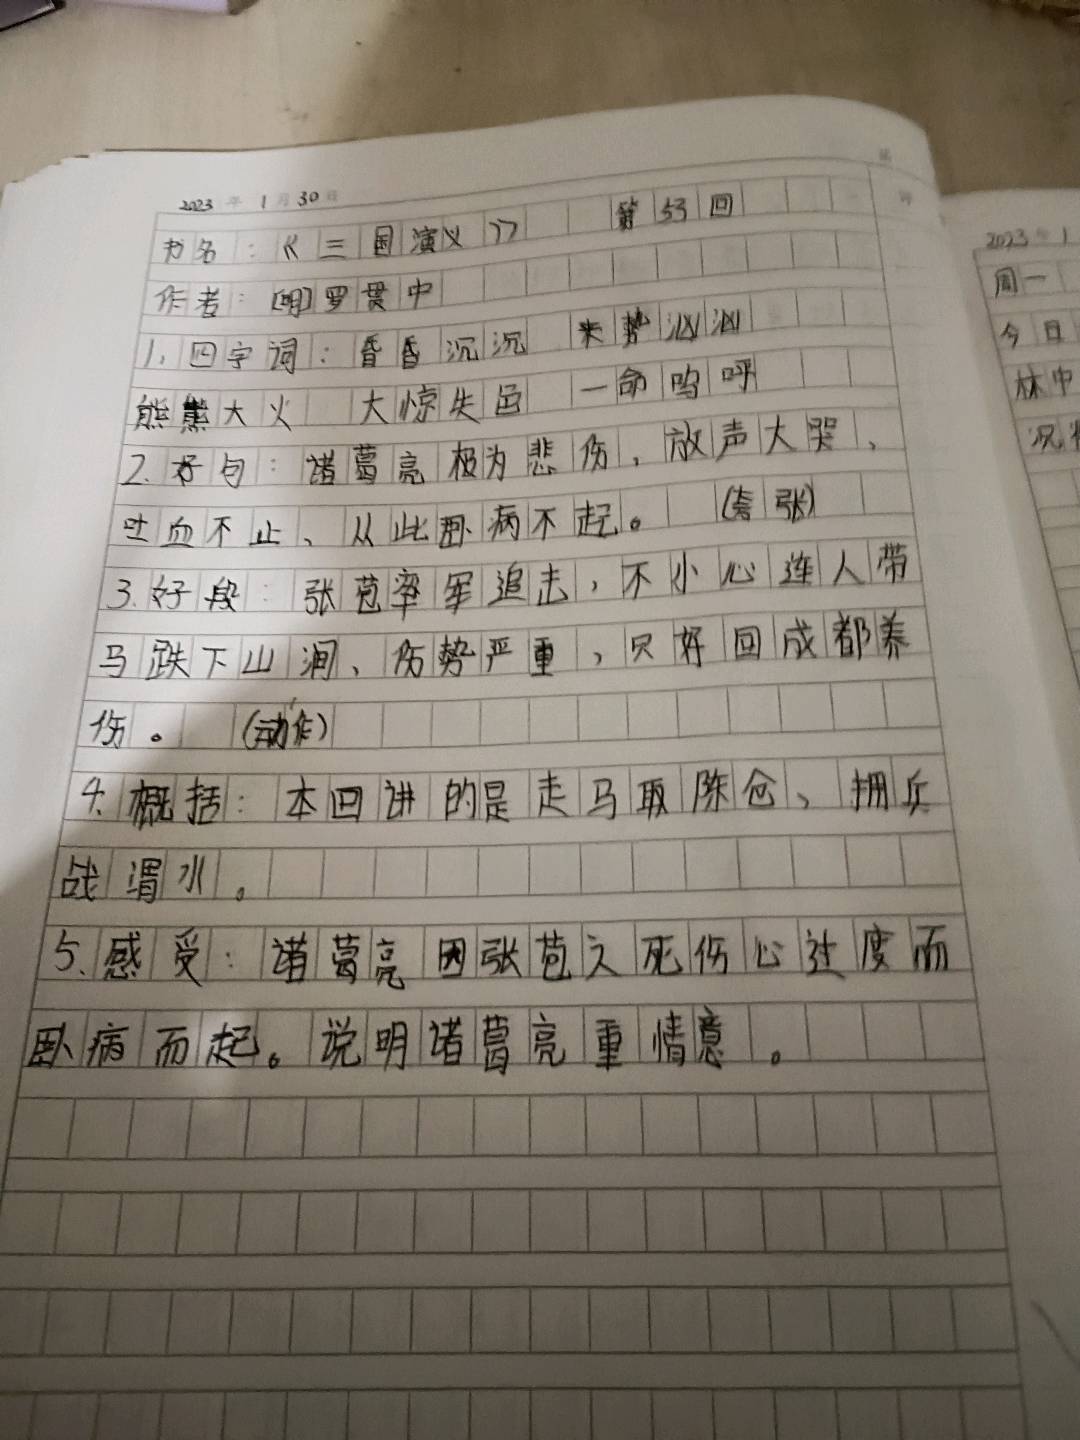 2023年1月30日
书名：《三国演义》 第53回
作者：[明]罗贯中
1.四字词：昏昏沉沉 来势汹汹
熊熊大火 大惊失色 一命呜呼
2.好句：诸葛亮极为悲伤，放声大哭，
吐血不止、从此卧病不起。 (夸张)
3.好段：张苞率军追击，不小心连人带
马跌下山涧、伤势严重，只好回成都养
伤。 (动作)
4.概括：本回讲的是走马取陈仓、拥兵
战渭水。
5.感受：诸葛亮因张苞之死伤心过度而
卧病而起。说明诸葛亮重情意。
2023年1
周一
今日
林中
况